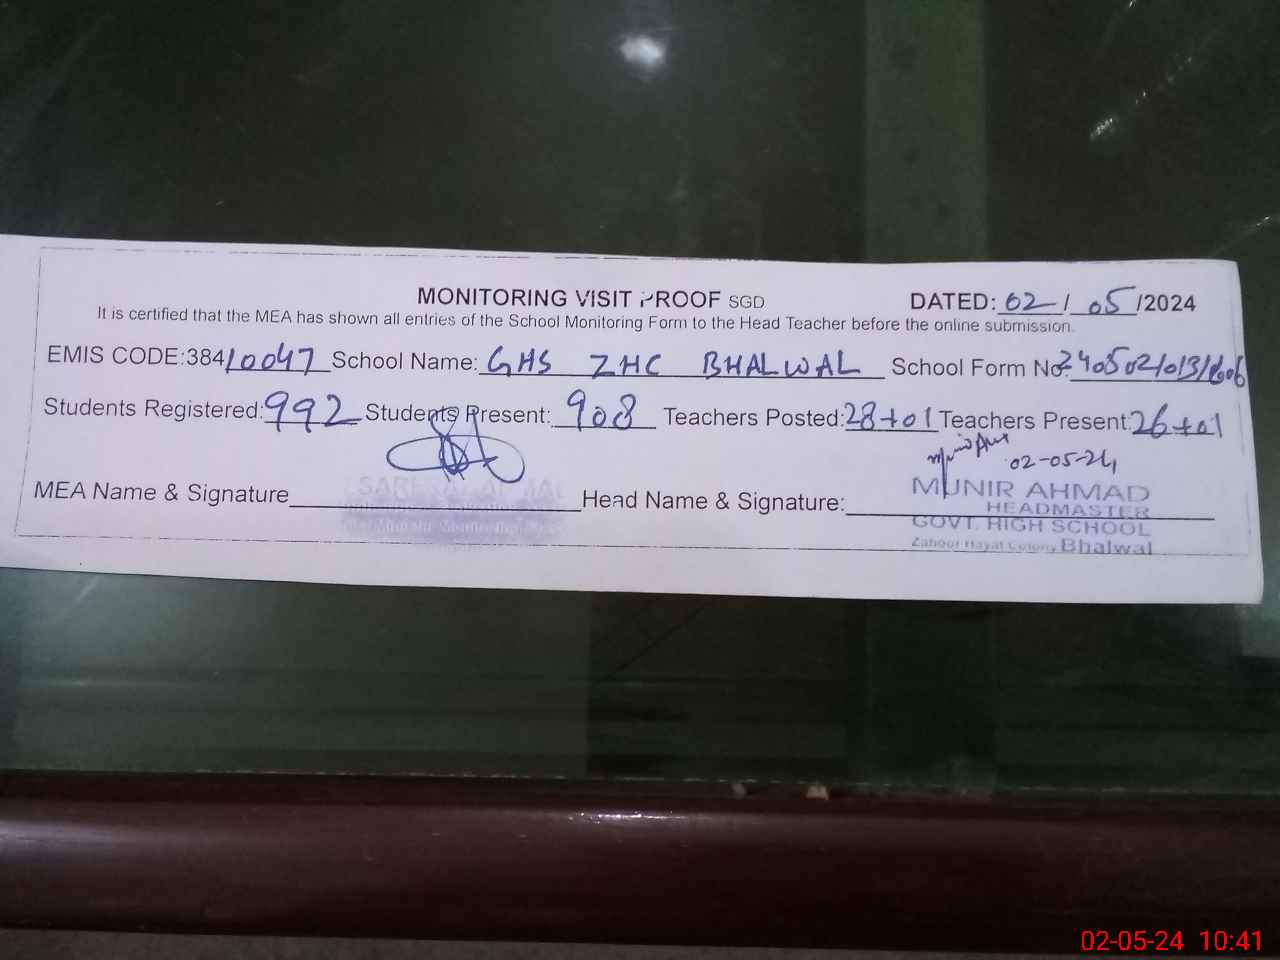 MONITORING VISIT PROOF SGD DATED: 02/05/2024
It is certified that the MEA has shown all entries of the School Monitoring Form to the Head Teacher before the online submission.
EMIS CODE:38410047 School Name: GHS ZHC BHALWAL School Form No:
Students Registered: 992 Students Present: 908 Teachers Posted: 28+01 Teachers Present: 26+01
02-05-24
MEA Name & Signature Head Name & Signature:
MUNIR AHMAD
HEADMASTER
GOVT. HIGH SCHOOL
Zahoor Hayat Colony Bhalwal
02-05-24 10:41